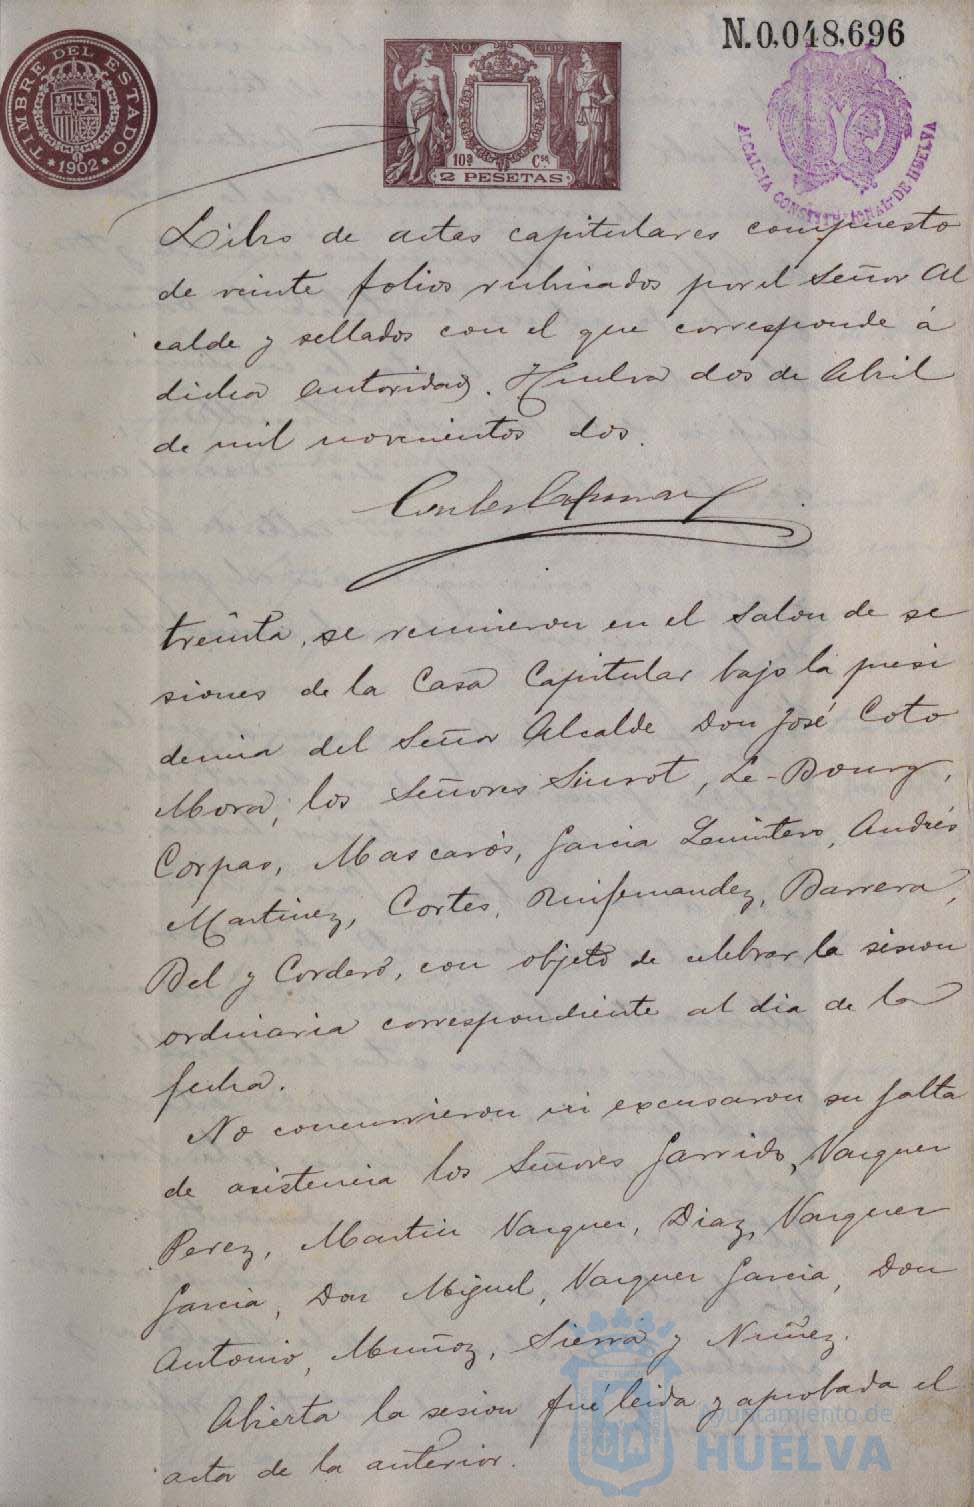 N.0,048,696
TIMBRE DEL ESTADO
*1902*
AÑO 1902
10ª Cse
2 PESETAS
ALCALDIA CONSTITUCIONAL DE HUELVA
Libro de actas capitulares compuesto
de veinte folios rubricados por el Señor Al
calde y sellados con el que corresponde á
dicha autoridad. Huelva dos de Abril
de mil novecientos dos.
treinta, se reunieron en el Salon de se
siones de la Casa Capitular bajo la presi
dencia del Señor Alcalde Don José Coto
Mora, los Señores Siurot, Le-Bourg,
Corpas, Mascarós, Garcia Quintero, Andrés
Martinez, Cortes, Ruifernandez, Barrera,
Bel y Cordero, con objeto de celebrar la sesion
ordinaria correspondiente al dia de la
fecha.
No concurrieron ni excusaron su falta
de asistencia los Señores Garrido, Vazquez
Perez, Martin Vazquez, Diaz, Vazquez
Garcia, Don Miguel, Vazquez Garcia, Don
Antonio, Muñoz, Sierra y Nuñez.
Abierta la sesion fué leida y aprobada el
acta de la anterior.
Ayuntamiento de
HUELVA